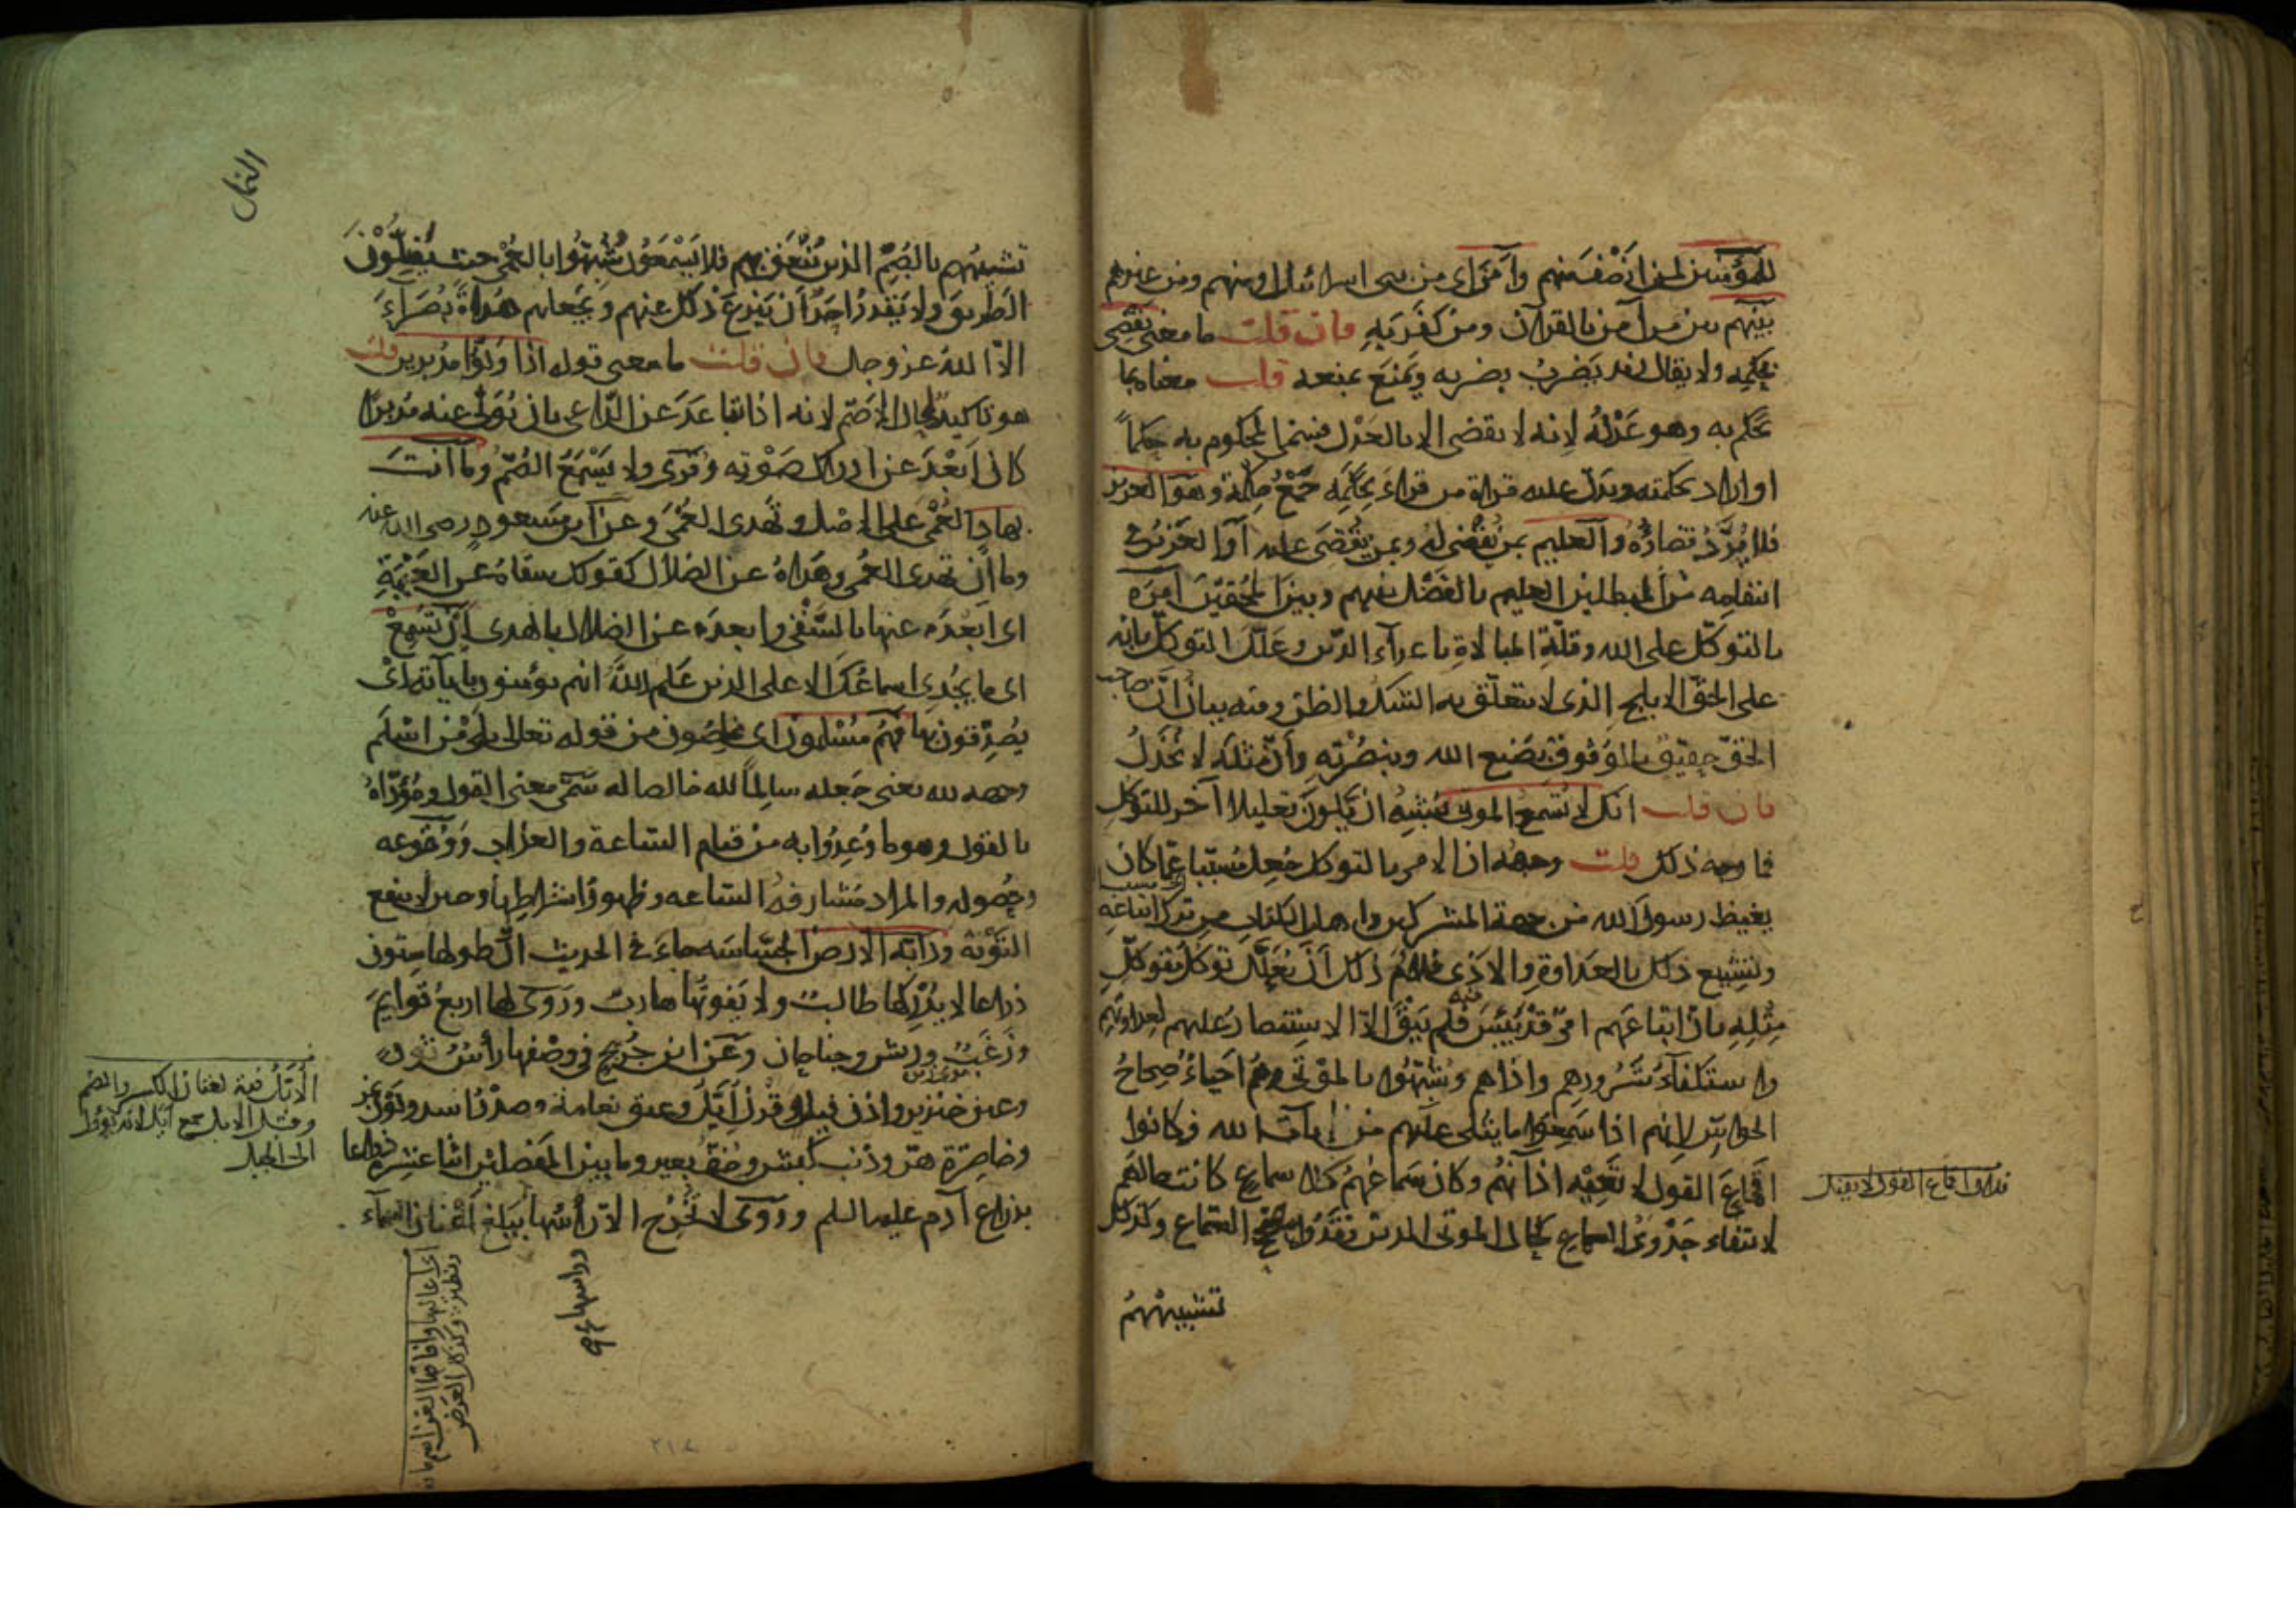 للمؤمنين لمن انصف منهم وآمن اى من بنى اسرائيل او منهم ومن غيرهم
بينهم بين من آمن بالقرآن ومن كفر به فان قلت ما معنى يقضى
بحكمه ولا يقال زيد يضرب بضربه ويمنع بمنعه قلت معناه بما
يحكم به وهو عدله لانه لا يقضى الا بالعدل فسمى المحكوم به حكماً
او اراد بحكمته ويدل عليه قراءة من قراء بحِكَمِه جمع حكمة وهو العزيز
فلا يُرَدّ قضاؤه والعليم بمن يُقضى له وبمن يُقضى عليه أو العزيز فى
انتقامه من المبطلين العليم بالفصل بينهم وبين المحقين امره
بالتوكل على الله وقلة المبالاة باعداء الدين وعلل التوكل بانه
على الحق الابلج الذى لا يتعلق به الشك والظن وفيه بيان ان صاحب
الحق حقيق بالوثوق بصنع الله وبنصرته وان مثله لا يخذل
فان قلت انك لا تسمع الموتى يشبه ان يكون تعليلا آخر للتوكل
فما وجه ذلك قلت وجهه ان الامر بالتوكل جعل مسببا عما كان
يغيظ رسول الله من جهة المشركين واهل الكتاب من ترك اتباعه
وتشييع ذلك بالعداوة والاذى فلاءم ذلك أن يعلل توكل متوكل
مثله بان اتباعهم امر قد يئس منه فلم يبق الا الاستنصار عليهم لعداوتهم
واستكفاء شرورهم واذاهم وشبّهوا بالموتى وهم احياء صحاح
الحواس لانهم اذا سمعوا ما يتلى عليهم من آيات الله فكانوا
اقماع القول لا تعيه اذانهم وكان سماعهم كلا سماع كانت حالهم
لانتفاء جدوى السماع كحال الموتى الذين فقدوا مصحح السماع وكذلك
تشبيههم
فلان اقماع القول لا يقبل
النمل
تشبيههم بالصم الذين يُنعق بهم فلا يسمعون شبّهوا بالعمى حيث يضلون
الطريق ولا يقدر احد ان ينزع ذلك عنهم ويجعلهم هداة بصراء
الا الله عز وجل فان قلت ما معنى قوله اذا ولوا مدبرين قلت
هو تاكيد لحال الاصم لانه اذا تباعد عن الداعى بان تولى عنه مدبرا
كان ابعد عن ادراك صوته وقرى ولا يسمع الصم وما انت
بهادٍ العمى على الاصل وتهدى العمى وعن ابن مسعود رضى الله عنه
وما ان تهدى العمى وهداه عن الضلال كقولك سقاه عن العيمة
اى ابعده عنها بالسقى وابعده عن الضلال بالهدى ان تسمع
اى ما يجدى اسماعك الا على الذين علم الله انهم يؤمنون باياته اى
يصدقون بها فهم مسلمون اى مخلصون من قوله تعالى بلى من اسلم
وجهه لله يعنى جعله سالما لله خالصا له سمى معنى القول ومؤداه
بالقول وهو ما وُعِدوا به من قيام الساعة والعذاب ووقوعه
وحصوله والمراد مشارفة الساعه وظهور اشراطها وحين لا ينفع
التوبة ودابة الارض الجساسه جاء فى الحديث ان طولها ستون
ذراعا لا يدركها طالب ولا يفوتها هارب وروى لها اربع قوائم
وزغب وريش وجناحان وعن ابن جريج فى وصفها رأس ثور
وعين خنزير واذن فيل وقرن ايل وعنق نعامة وصدر اسد ولون نمر
وخاصرة هر وذنب كبش وخف بعير وما بين المفصلين اثنا عشر ذراعا
بذراع آدم عليه السلم وروى لا تخرج الا رأسها يبلغ أعنان السماء
الايل فيه لغتان الكسر والضم
وقيل الايل جمع آيل لانه يؤول
الى الجبل
ورأسها
اى اعاليها وآفاقها
٢١٤